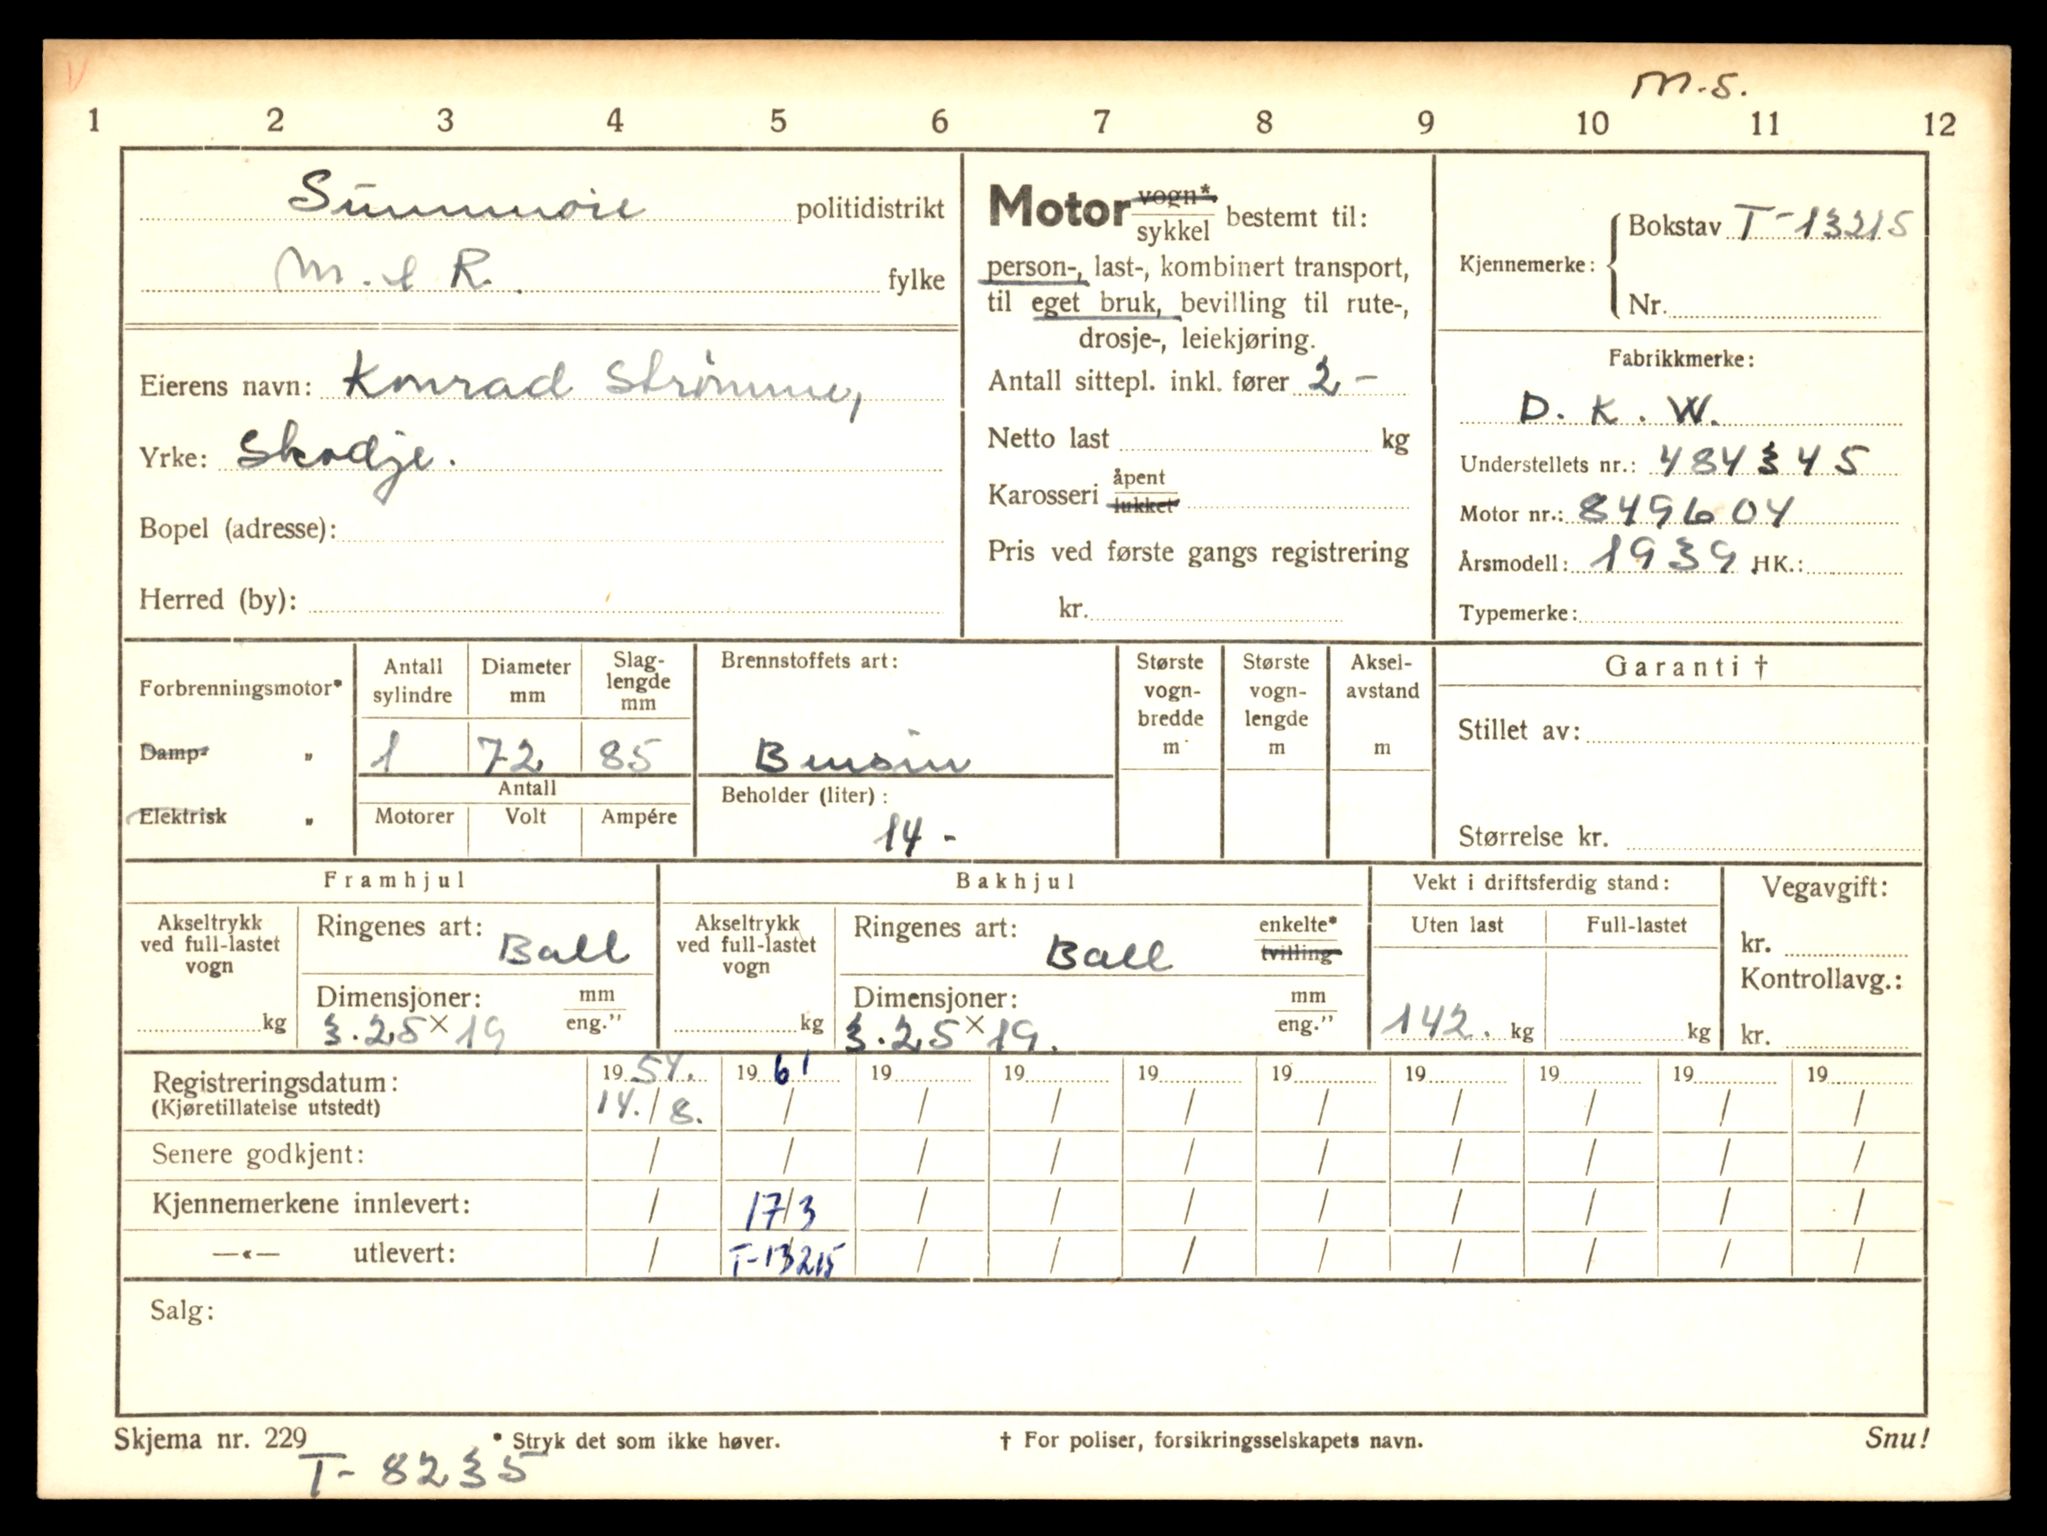 M.S.
1 2 3 4 5 6 7 8 9 10 11 12
Sunnmøre politidistrikt
M. & R. fylke
Eierens navn: Konrad Strømme,
Yrke: Skodje.
Bopel (adresse):
Herred (by):
Motor vogn*
sykkel bestemt til:
person-, last-, kombinert transport,
til eget bruk, bevilling til rute-,
drosje-, leiekjøring.
Antall sittepl. inkl. fører 2 -
Netto last kg
Karosseri åpent
lukket
Pris ved første gangs registrering
kr.
Kjennemerke:
Bokstav T-13215
Nr.
Fabrikkmerke:
D. K. W.
Understellets nr.: 484345
Motor nr.: 849604
Årsmodell: 1939 HK.:
Typemerke:
Forbrenningsmotor*
Damp- „
Elektrisk „
Antall sylindre
1
Diameter mm
72
Slag-
lengde
mm
85
Antall
Motorer Volt Ampére
Brennstoffets art:
Bensin
Beholder (liter):
14 -
Største
vogn-
bredde
m
Største
vogn-
lengde
m
Aksel-
avstand
m
Garanti †
Stillet av:
Størrelse kr.
Framhjul
Akseltrykk
ved full-lastet
vogn
kg
Ringenes art:
Ball
Dimensjoner: mm
eng."
3.25 x 19
Bakhjul
Akseltrykk
ved full-lastet
vogn
kg
Ringenes art: enkelte*
tvilling
Ball
Dimensjoner: mm
eng."
3.25 x 19.
Vekt i driftsferdig stand:
Uten last Full-lastet
142. kg kg
Vegavgift:
kr.
Kontrollavg.:
kr.
Registreringsdatum: 19 54. 19 61 19 19 19 19 19 19 19 19
(Kjøretillatelse utstedt) 14. / 8. / / / / / / / / /
Senere godkjent: / / / / / / / / / /
Kjennemerkene innlevert: / 17/3 / / / / / / / /
—«— utlevert: / T-13215 / / / / / / / /
Salg:
Skjema nr. 229 * Stryk det som ikke høver. † For poliser, forsikringsselskapets navn. Snu!
T- 8235